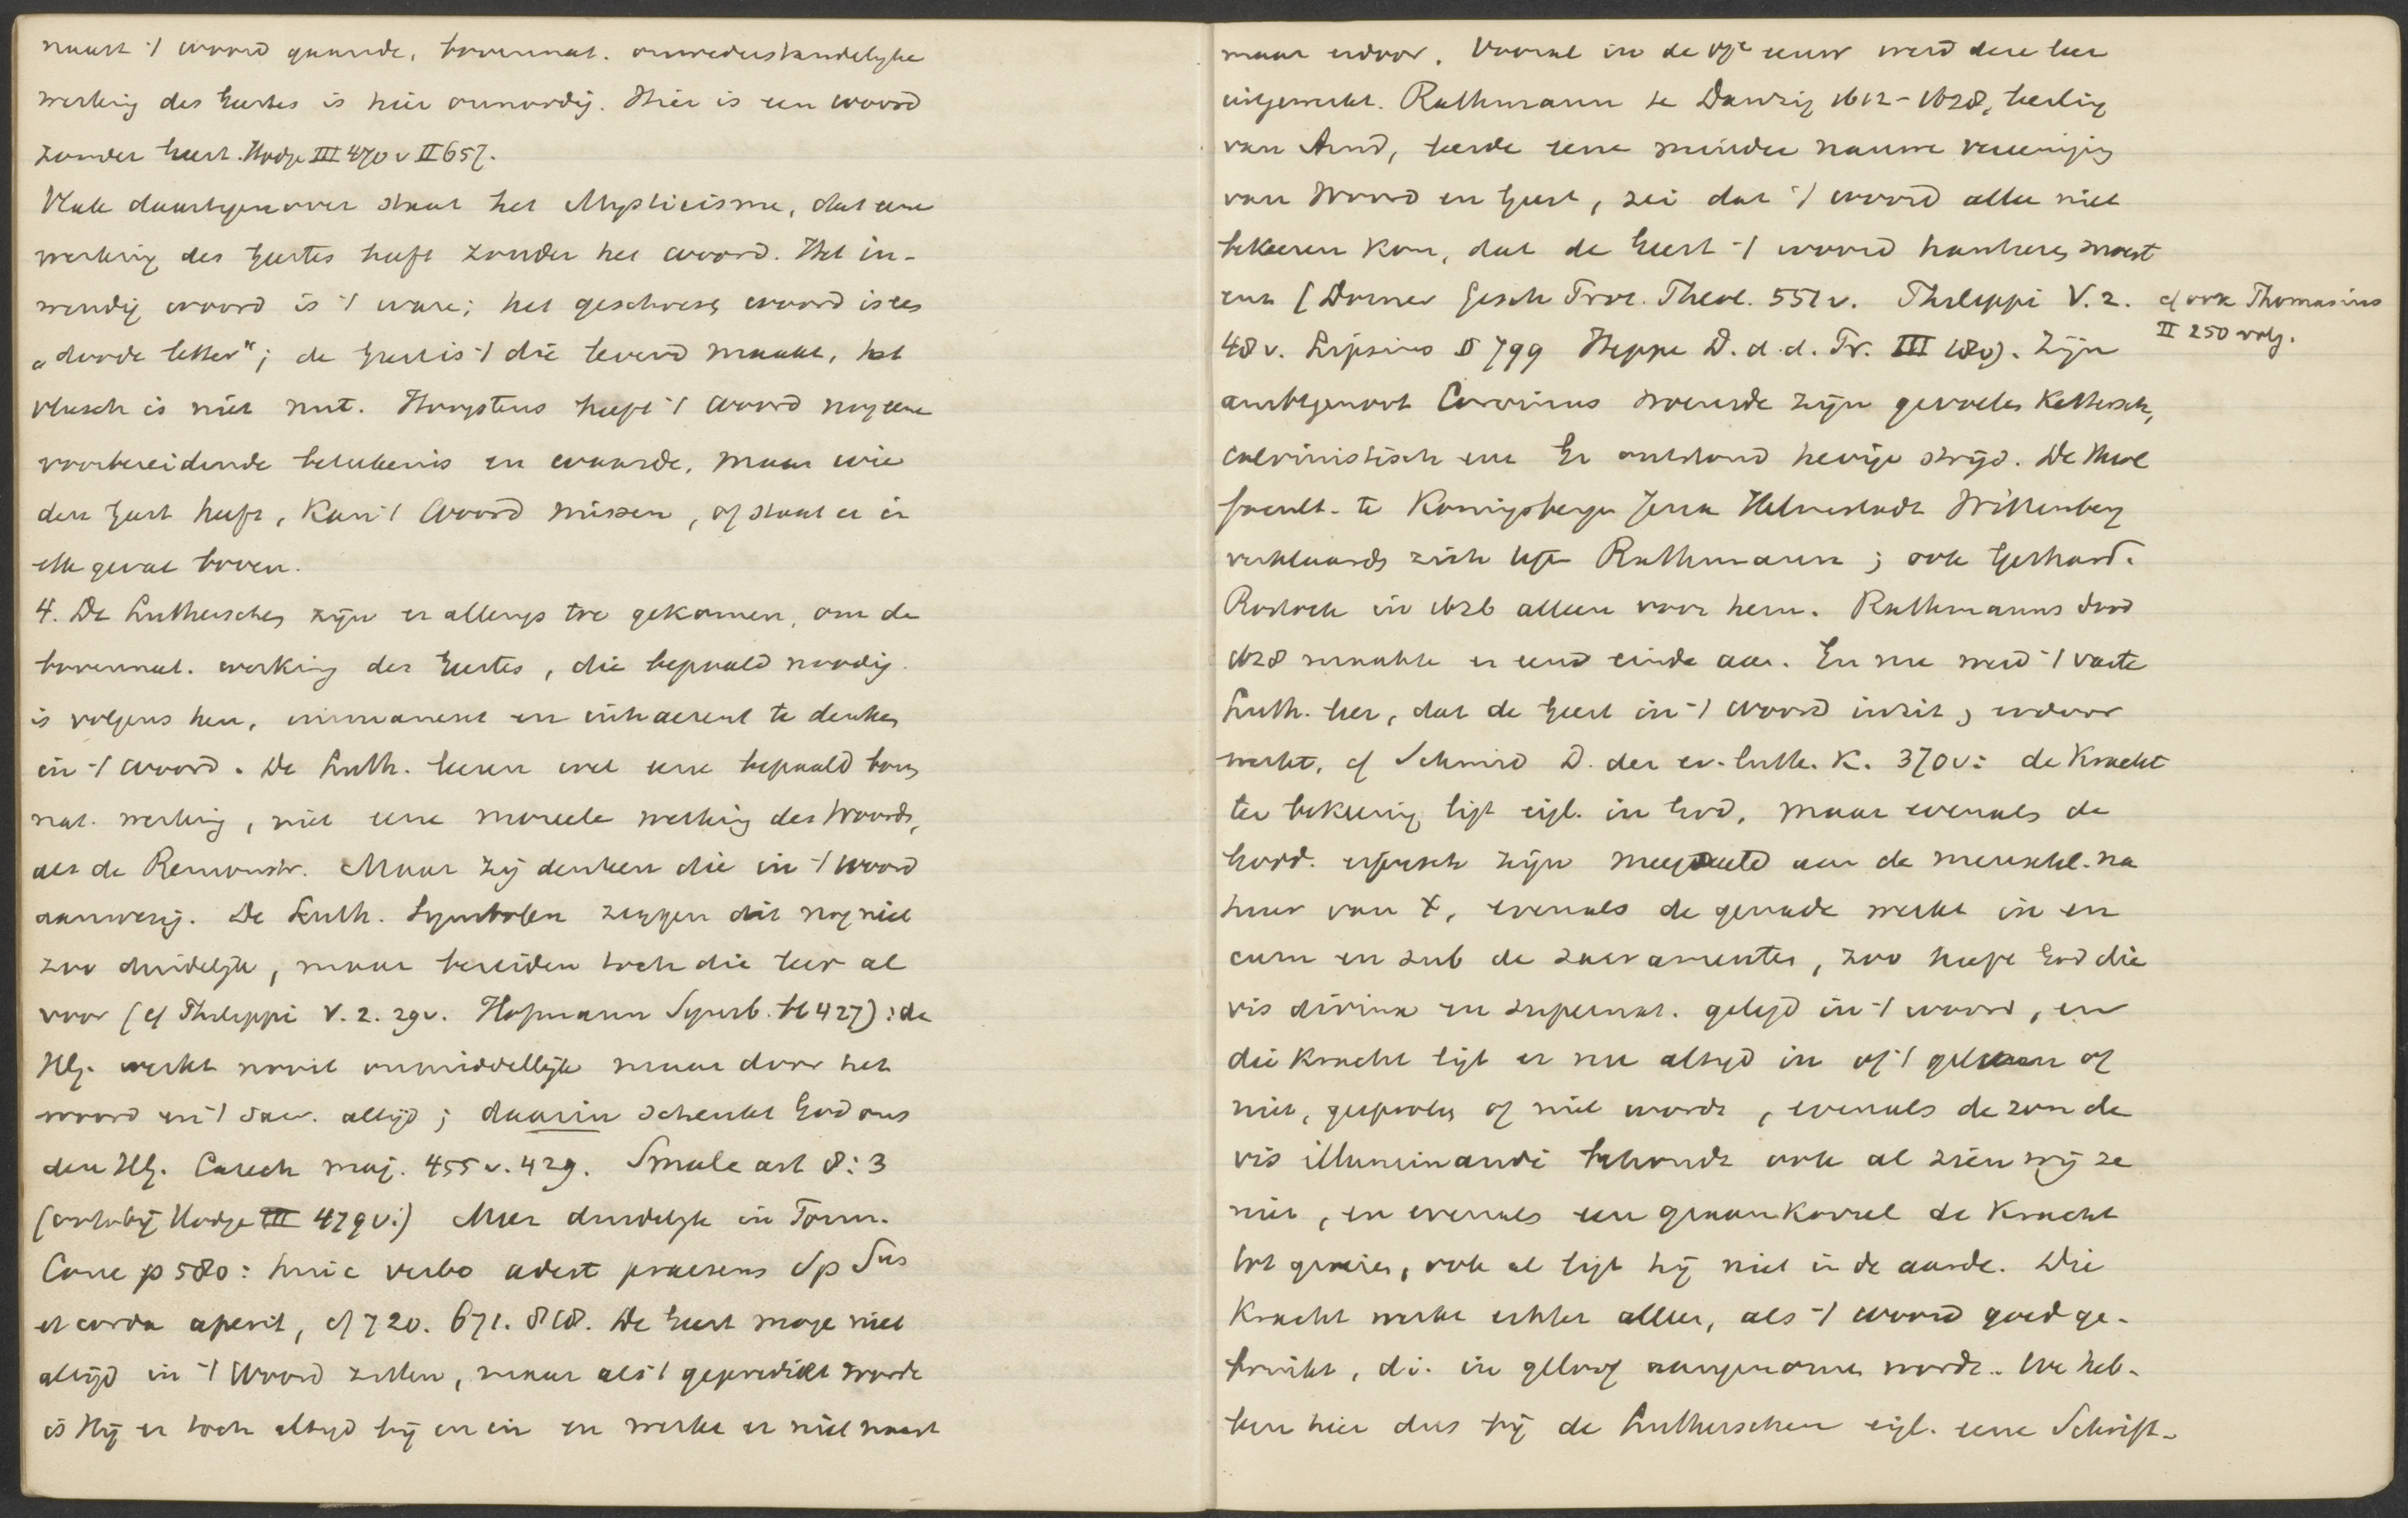 naast 't woord gaande, bovennat. onwederstandelyke
werking des Geestes is hier onnoodig. Hier is een woord
zonder Geest. Hodge III 470 v II 657.
Vlak daartegenover staat het Mysticisme, dat eene
werking des Geestes heeft zonder het woord. Het in-
wendig woord is 't ware; het geschreven woord is een
„doode letter"; de Geest is 't die levend maakt, het
vleesch is niet nut. Hoogstens heeft 't Woord nog eene
voorbereidende beteekenis en waarde, maar wie
den Geest heeft, Kan 't Woord missen, of staat er in
elk geval boven.
4. De Lutherschen zijn er allengs toe gekomen, om de
bovennat. werking des Geestes, die bepaald noodig
is volgens hen, immanent en inhaerent te denken
in 't woord. De Luth. leeren wel eene bepaald boven
nat. werking, niet eene moreele werking des Woords,
als de Remonstr. Maar zij denken die in 't woord
aanwezig. De Luth. Symbolen zeggen dit nog niet
zoo duidelijk, maar bereiden toch die leer al
voor (cf Philippi V. 2. 29v. Hofmann Symb. bl 427): de
HG. werkt nooit onmiddellijk maar door het
woord en 't Sacr. altijd; daarin schenkt God ons
den HG. Catech maj. 455 v. 429. Smalc art 8: 3
(ook bij Hodge III 479 v.) Meer duidelyk in Form.
Conc p 580: huic verbo adest praesens Sp Sus
et corda aperit, cf 720. 671. 818. De Geest moge niet
altijd in 't Woord zitten, maar als 't gepredikt wordt
is Hij er toch altijd bij en in en werkt er niet naast
maar erdoor. Vooral in de 17e eeuw werd deze leer
uitgewerkt. Rathmann te Danzig 1612-1628, leerling
van Arnd, leerde eene minder nauwe vereeniging
van Woord en Geest, zei dat 't woord alleen niet
bekeeren kon, dat de Geest 't woord hanteeren moest
enz (Dorner Gesch Prot. Theol. 551 v. Philippi V. 2.
cf ook Thomasius
II 250 volg.
48 v. Lipsius § 799 Heppe D. d. d. Pr. III 180). Zijn
ambtgenoot Corvinus noemde zijn gevoelen Kettersch,
calvinistisch enz Er ontstond hevige strijd. De theol
facult. te Konigsbergen Jena Helmstadt Wittenberg
verklaarden zich tegen Rathmann; ook Gerhard.
Rostock in 1626 alleen voor hem. Rathmanns dood
1628 maakte er een einde aan. En nu werd 't vaste
Luth. leer, dat de Geest in 't Woord inzit, erdoor
werkt, cf Schmid D. der ev. luth. K. 370 v: de Kracht
ter bekeering ligt eigl. in God, maar evenals de
Godd. eigensch zijn meegedeeld aan de menschl. na
tuur van X, evenals de genade werkt in en
cum en sub de sacramenten, zoo heeft God die
vis divina en supernat. gelegd in 't woord, en
die Kracht ligt er nu altyd in of 't gelezen of
niet, gesproken of niet wordt, evenals de zon de
vis illuminandi behoudt ook al zien wij ze
niet, en evenals een graankorrel de Kracht
tot groeien, ook al ligt hij niet in de aarde. Die
Kracht werkt echter alleen, als 't woord goed ge-
bruikt, d.i. in geloof aangenomen wordt. We heb-
ben hier dus bij de Lutherschen eigl. eene Schrift-